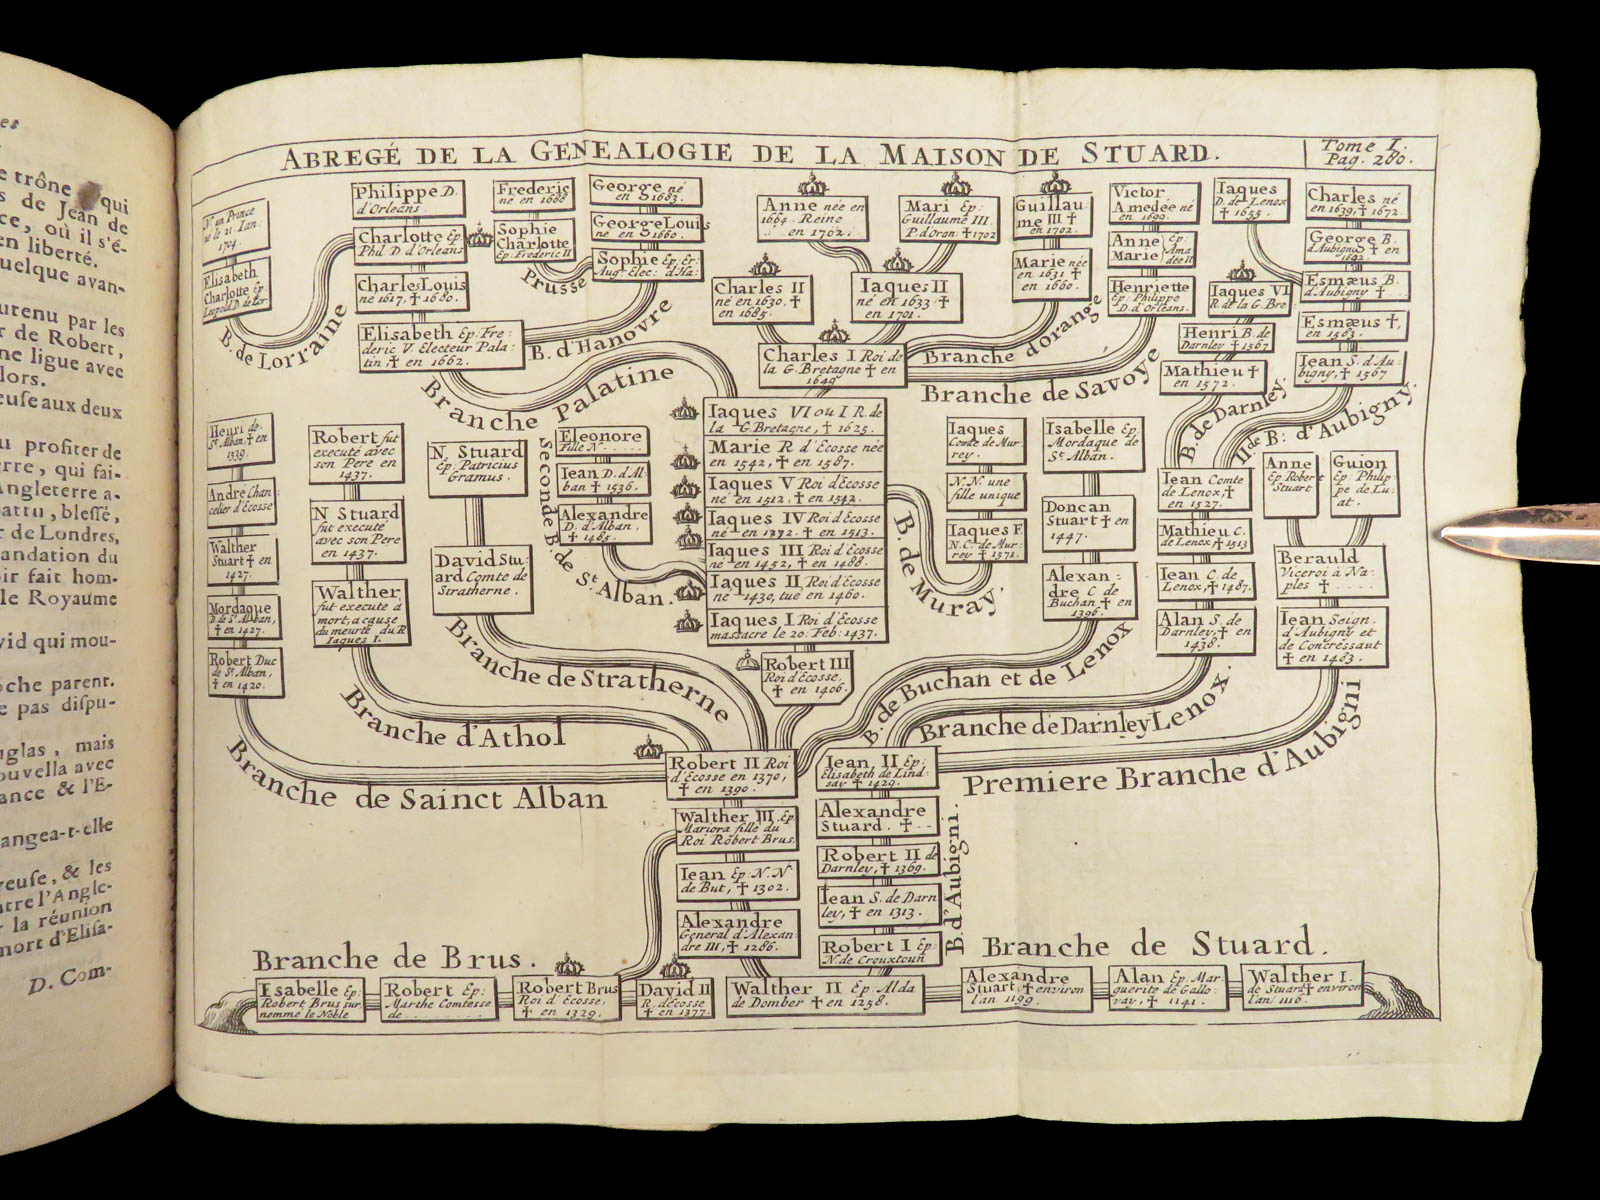 es
e trône qui
s de Jean de
ce, où il s'é-
en liberté.
quelque avan-
urenu par les
r de Robert,
ne ligue avec
lors.
reuse aux deux
u profiter de
erre, qui fai-
Angleterre a-
battu, blessé,
r de Londres,
andation du
oir fait hom-
le Royaume
vid qui mou-
oche parent.
e pas dispu-
uglas, mais
ouvella avec
ance & l'E-
angea-t-elle
reuse, & les
ntre l'Angle-
la réunion
mort d'Elisa-
D. Com-
ABREGÉ DE LA GENEALOGIE DE LA MAISON DE STUARD.
Tome I.
Pag. 280.
un Prince
né le 21. Ian:
1704.
Elisabeth
Charlotte Ep:
Leopold D. de Lor
B. de Lorraine
Philippe D.
d'Orleans.
Charlotte Ep:
Phil. D. d'Orleans
Charles Louis
né 1617, † 1680.
Elisabeth Ep: Fre:
deric V. Electeur Pala:
tin, † en 1662.
Frederic
né en 1688
Sophie
Charlotte
Ep: Frederic II
Prusse
George né
en 1683.
George Louis
né en 1660.
Sophie Ep: Er:
Aug. Elec: d'Ha:
B. d'Hanovre
Branche Palatine
Anne née en
1664. Reine
en 1702.
Mari Ep:
Guillaume III.
P. d'Oran: † 1702
Charles II
né en 1630, †
en 1685.
Iaques II
né en 1633 †
en 1701.
Charles I Roi de
la G. Bretagne † en
1649
Guillau:
me III †
en 1702.
Marie née
en 1631 †
en 1660.
Branche d'orange
Victor
Amedée né
en 1699.
Anne Ep:
Marie Ama
dée II
Henriette
Ep: Philippe
D. d'Orleans.
Branche de Savoye
Iaques
D. de Lenox
† 1655.
Iaques VI
R. de la G. Bre
Henri B. de
Darnley † 1567
Mathieu †
en 1572.
B. de Darnley.
Charles né
en 1639, † 1672.
George B.
d'Aubigni † en
1642
Esmæus B.
d'Aubigny † ...
Esmæus †,
en 1583.
Iean S. d'Au:
bigny, † 1567
II de B: d'Aubigny.
Henri de
St. Alban, † en
1539.
André Chan:
celier d'Ecosse
Walther
Stuart † en
1427.
Mordaque
D. de St. Alban,
† en 1427.
Robert Duc
de St. Alban,
† en 1420.
Robert fut
executé avec
son Pere en
1437.
N Stuard
fut executé
avec son Pere
en 1437.
Walther
fut executé à
mort, a cause
du meurté du R
Iaques I.
N. Stuard
Ep: Patricius
Gramus.
David Stu:
ard Comte de
Stratherne.
Seconde B. de St. Alban.
Eleonore
Fille N.....
Iean D. d'Al:
ban † 1536.
Alexandre
D. d'Alban,
† 1485.
Iaques VI ou I R. de
la G. Bretagne, † en 1625.
Marie R d'Ecosse née
en 1542, † en 1587.
Iaques V Roi d'Ecosse
né en 1512, † en 1542.
Iaques IV Roi d'Ecosse
né en 1772. † en 1513.
Iaques III Roi d'Ecosse
né en 1452, † en 1488.
Iaques II, Roi d'Ecosse
né 1430, tué en 1460.
Iaques I Roi d'Ecosse
massacré le 20: Feb: 1437.
Robert III
Roi d'Ecosse,
† en 1406.
Iaques
Comte de Mur:
rey.
N.N. une
fille unique
Iaques F.
N. C. de Mur:
rey † 1571.
B. de Muray.
Isabelle Ep:
Mordaque de
St. Alban.
Doncan
Stuart † en
1447.
Alexan:
dre C. de
Buchan † en
1396.
Iean Comte
de Lenox, †
en 1527.
Mathieu C.
de Lenox † 1513
Iean C. de
Lenox, † 1487.
Alan S. de
Darnley, † en
1438.
Anne
Ep: Robert
Stuart
Guion
Ep: Philip
pe de Lu:
at.
Berauld
Viceroi à Na:
ples † .....
Iean Seign.
d'Aubigny et
de Concressaut
† en 1483.
Branche de Stratherne
Branche d'Athol
Branche de Sainct Alban
B. de Buchan et de Lenox
Branche de Darnley Lenox.
Premiere Branche d'Aubigni
Robert II Roi
d'Ecosse en 1370,
† en 1390.
Walther III. Ep.
Mariora fille du
Roi Robert Brus.
Iean Ep: N.N
de But, † 1302.
Alexandre
General d'Alexan:
dre III, † 1286.
Iean, II Ep:
Elisabeth de Lind:
say † 1429.
Alexandre
Stuard. † ...
Robert II de
Darnley, † 1369.
Iean S. de Darn
ley, † en 1313.
Robert I Ep:
N. de Crouxtoun
B. d'Aubigni.
Branche de Brus.
Branche de Stuard.
Esabelle Ep:
Robert Brus sur:
nommé le Noble
Robert Ep:
Marthe Comtesse
de .........
Robert Brus
Roi d'Ecosse,
† en 1329.
David II
R. d'Ecosse
† en 1377.
Walther II Ep. Alda
de Domber † en 1258.
Alexandre
Stuart † environ
l'an 1199.
Alan Ep. Mar:
guerite de Gallo:
vay, † 1141.
Walther I.
de Stuard † environ
l'an 1116.